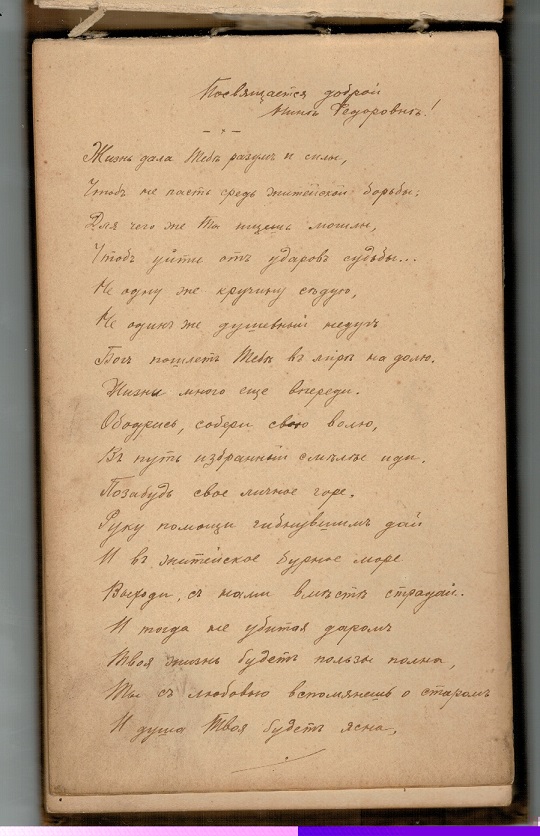 Посвящается доброй
Нинѣ Ѳедоровнѣ!
Жизнь дала Тебѣ разумъ и силы,
Чтобъ не пасть средь житейской борьбы.
Для чего же Ты ищешь могилы,
Чтобъ уйти отъ ударовъ судьбы...
Не одну же кручину сѣдую,
Не одинъ же душевный недугъ
Богъ пошлетъ Тебѣ въ мірѣ на долю.
Жизни много еще впереди.
Ободрись, собери свою волю,
Въ путь избранный смѣлѣе иди.
Позабудь свое личное горе,
Руку помощи гибнувшимъ дай
И въ житейское бурное море
Выходи, съ нами вмѣстѣ страдай.
И тогда не убитая даромъ
Твоя жизнь будетъ пользы полна,
Ты съ любовью вспомянешь о старомъ
И душа Твоя будетъ ясна.